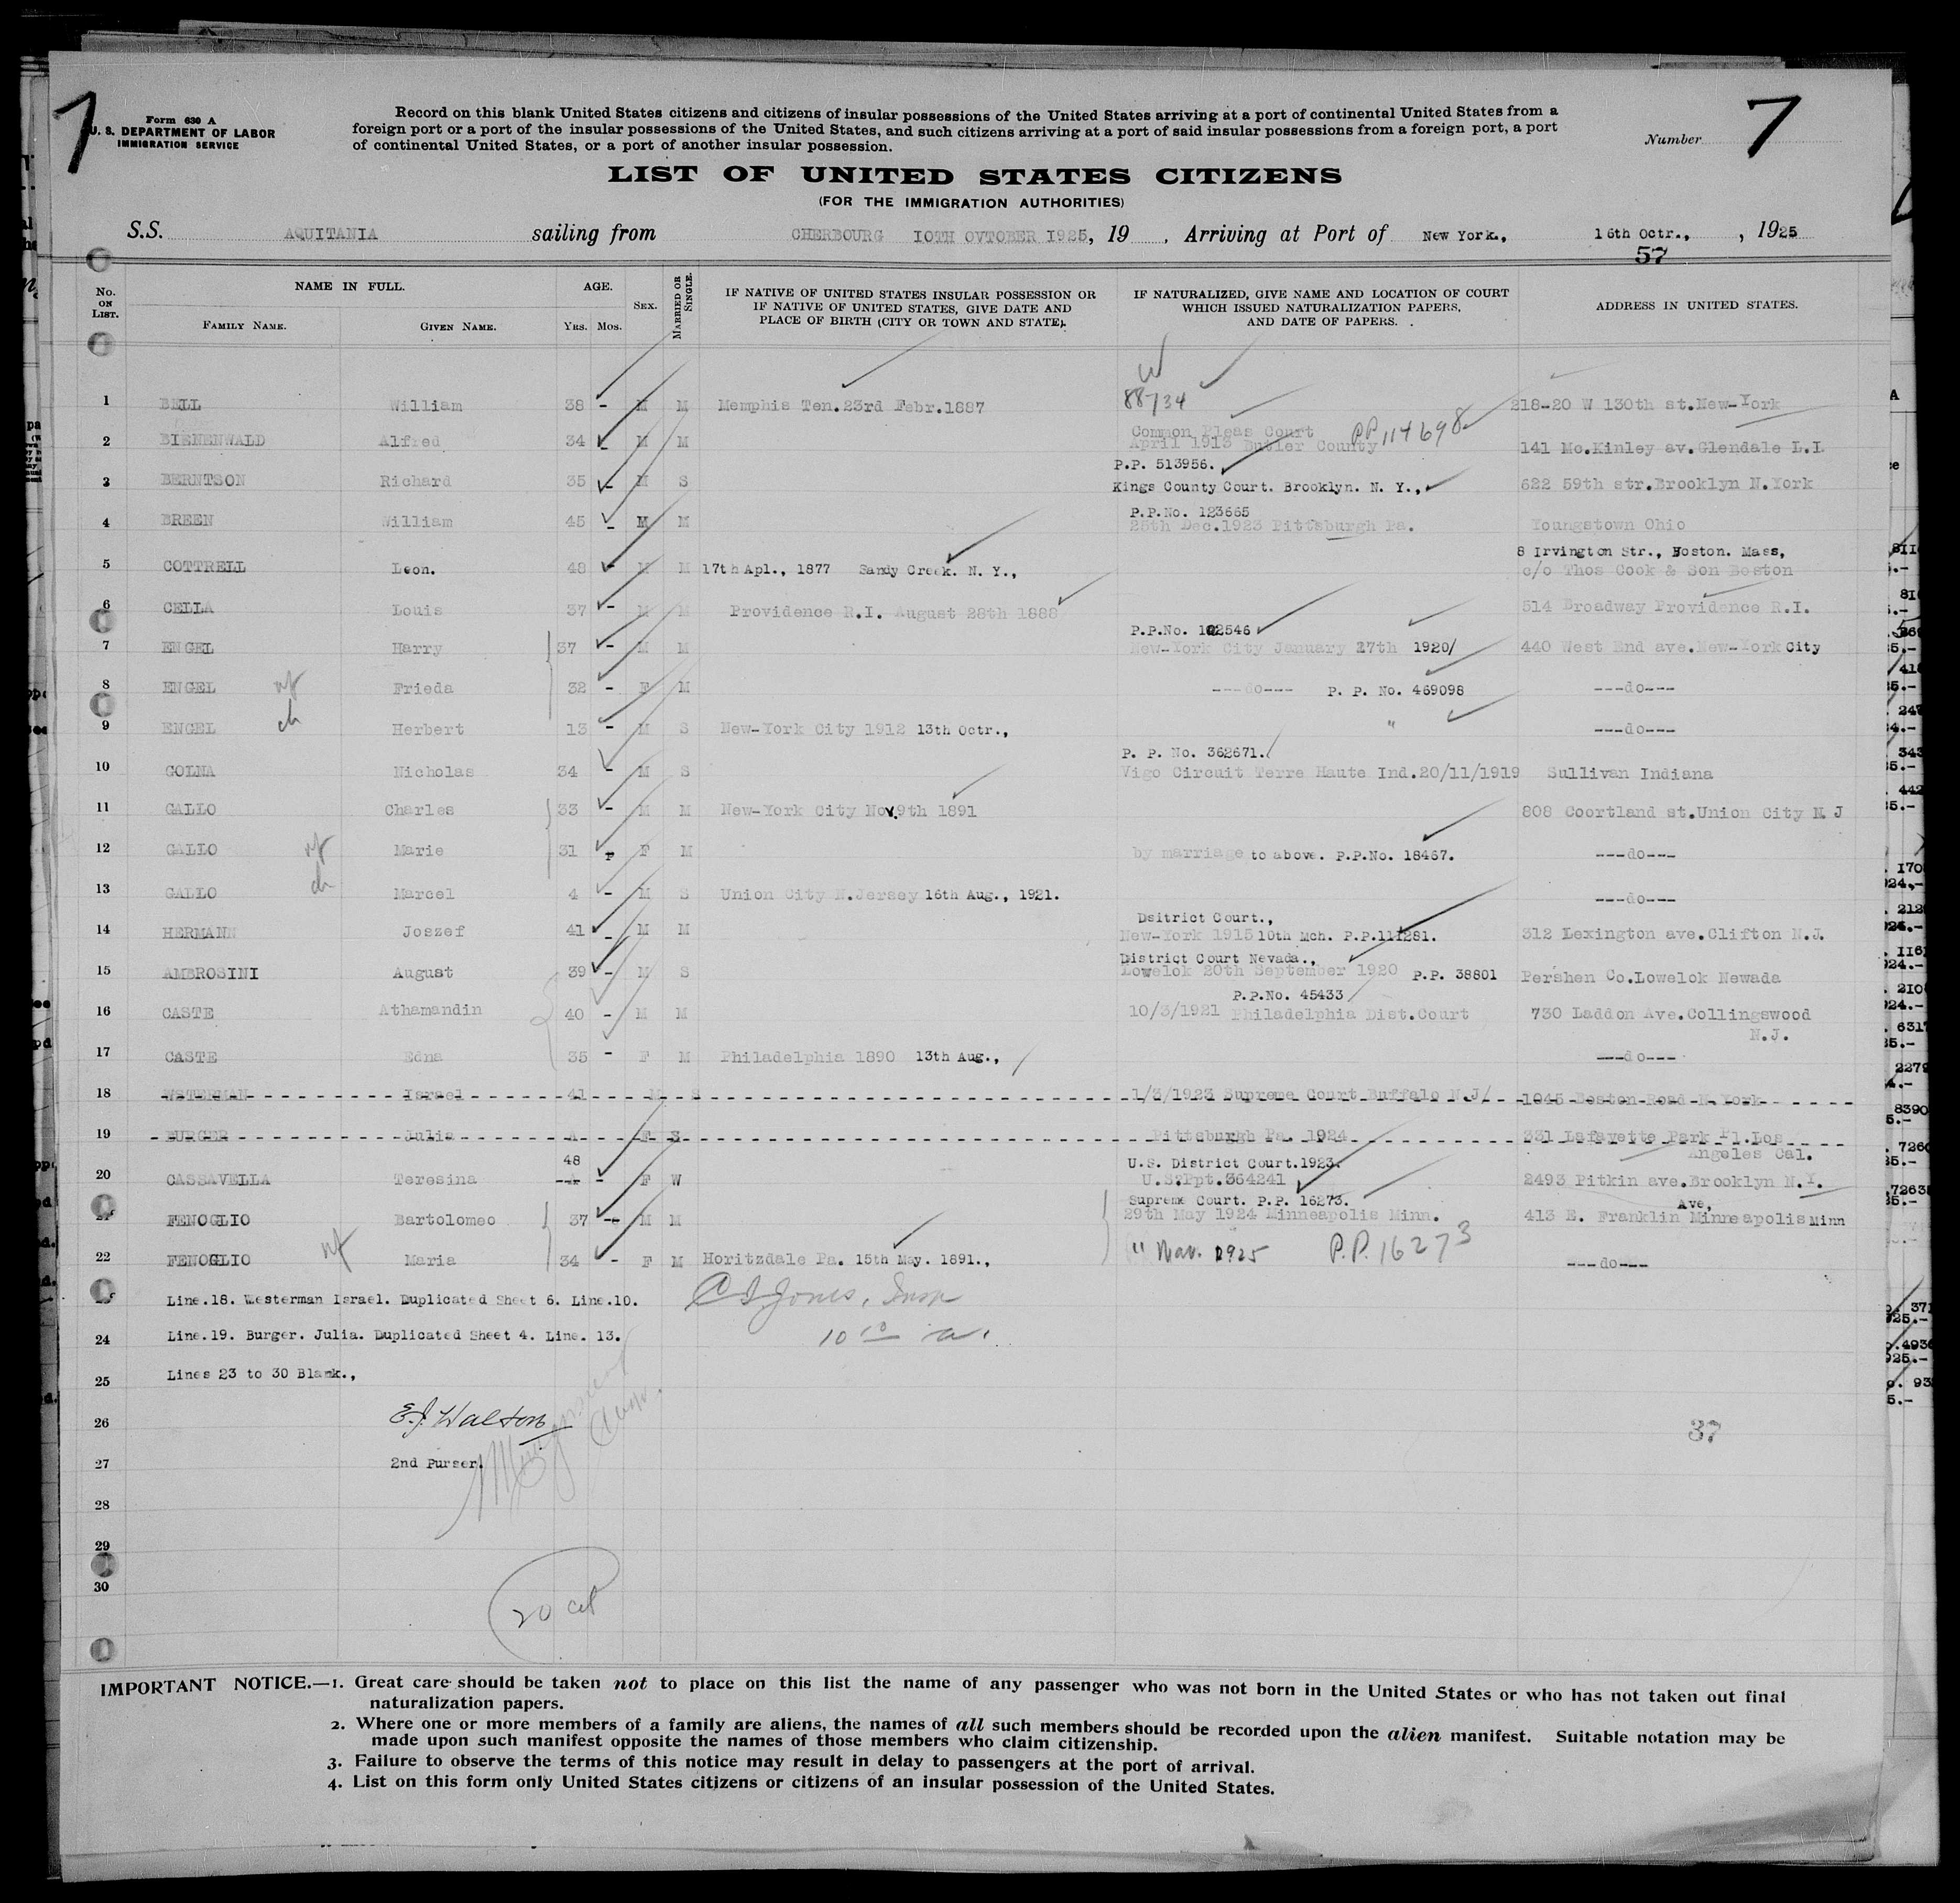 7
7
Form 630 A
U. S. DEPARTMENT OF LABOR
IMMIGRATION SERVICE
Record on this blank United States citizens and citizens of insular possessions of the United States arriving at a port of continental United States from a
foreign port or a port of the insular possessions of the United States, and such citizens arriving at a port of said insular possessions from a foreign port, a port
of continental United States, or a port of another insular possession.
Number
LIST OF UNITED STATES CITIZENS
(FOR THE IMMIGRATION AUTHORITIES)
S.S. AQUITANIA sailing from CHERBOURG 10TH OVTOBER 1925, 19 , Arriving at Port of New York., 16th Octr., , 1925
57
No. ON LIST. NAME IN FULL. FAMILY NAME. GIVEN NAME. AGE. YRS. MOS. SEX. MARRIED OR SINGLE.
IF NATIVE OF UNITED STATES INSULAR POSSESSION OR
IF NATIVE OF UNITED STATES, GIVE DATE AND
PLACE OF BIRTH (CITY OR TOWN AND STATE).
IF NATURALIZED, GIVE NAME AND LOCATION OF COURT
WHICH ISSUED NATURALIZATION PAPERS,
AND DATE OF PAPERS.
ADDRESS IN UNITED STATES.
W
88734
1 BELL William 38 - M M Memphis Ten. 23rd Febr. 1887 218-20 W 130th st. New-York
Common Pleas Court PP 114698
2 BIENENWALD Alfred 34 - M M April 1913 Butler County 141 Mc.Kinley av. Glendale L.I
P.P. 513956.
3 BERNTSON Richard 35 - M S Kings County Court. Brooklyn. N. Y., 622 59th str. Brooklyn N.York
P.P.No. 123665
4 BREEN William 45 - M M 25th Dec. 1923 Pittsburgh Pa. Youngstown Ohio
8 Irvington Str., Boston. Mass,
5 COTTRELL Leon. 48 - M M 17th Apl., 1877 Sandy Creek. N. Y., c/o Thos Cook & Son Boston
6 CELLA Louis 37 - M M Providence R.I. August 28th 1888 514 Broadway Providence R.I.
P.P.No. 102546
7 ENGEL Harry 37 - M M New-York City January 27th 1920/ 440 West End ave. New-York City
8 ENGEL wf Frieda 32 - F M ---do--- P. P. No. 469098 ---do---
9 ENGEL ch Herbert 13 - M S New-York City 1912 13th Octr., " ---do---
P. P. No. 362671.
10 GOLNA Nicholas 34 - M S Vigo Circuit Terre Haute Ind. 20/11/1919 Sullivan Indiana
11 GALLO Charles 33 - M M New-York City Nov. 9th 1891 808 Coortland st. Union City N J
12 GALLO wf Marie 31 - F M by marriage to above. P.P.No. 18467. ---do---
13 GALLO ch Marcel 4 - M S Union City N.Jersey 16th Aug., 1921. ---do---
Dsitrict Court.,
14 HERMANN Joszef 41 - M M New-York 1915 10th Mch. P.P.111281. 312 Lexington ave. Clifton N.J.
District Court Nevada.,
15 AMBROSINI August 39 - M S Lowelok 20th September 1920 P.P. 38801 Pershen Co. Lowelok Newada
P.P.No. 45433
16 CASTE Athamandin 40 - M M 10/3/1921 Philadelphia Dist. Court 730 Laddon Ave. Collingswood
N.J.
17 CASTE Edna 35 - F M Philadelphia 1890 13th Aug., ---do---
18 WSTERMAN Israel 41 M S 1/3/1923 Supreme Court Buffalo N.J/ 1045 Boston Road N York
19 BURGER Julia F S Pittsburgh Pa. 1924 331 Lafayette Park Pl. Los
Angeles Cal.
48 U.S. District Court. 1923.
20 CASSAVELLA Teresina - F W U.S. Ppt. 364241 2493 Pitkin ave. Brooklyn N.Y.
Supreme Court. P.P. 16273. Ave,
21 FENOGLIO Bartolomeo 37 - M M 29th May 1924 Minneapolis Minn. 413 E. Franklin Minneapolis Minn
22 FENOGLIO wf Maria 34 - F M Horitzdale Pa. 15th May. 1891., " Nav. 1925 P.P. 16273 ---do---
Line.18. Westerman Israel. Duplicated Sheet 6. Line.10. C S Jones, Insp
24 Line.19. Burger. Julia. Duplicated Sheet 4. Line. 13.
25 Lines 23 to 30 Blank.,
26 E.J. Walton 37
27 2nd Purser.
28
29
30
20 cit
IMPORTANT NOTICE.—1. Great care should be taken not to place on this list the name of any passenger who was not born in the United States or who has not taken out final
naturalization papers.
2. Where one or more members of a family are aliens, the names of all such members should be recorded upon the alien manifest. Suitable notation may be
made upon such manifest opposite the names of those members who claim citizenship.
3. Failure to observe the terms of this notice may result in delay to passengers at the port of arrival.
4. List on this form only United States citizens or citizens of an insular possession of the United States.